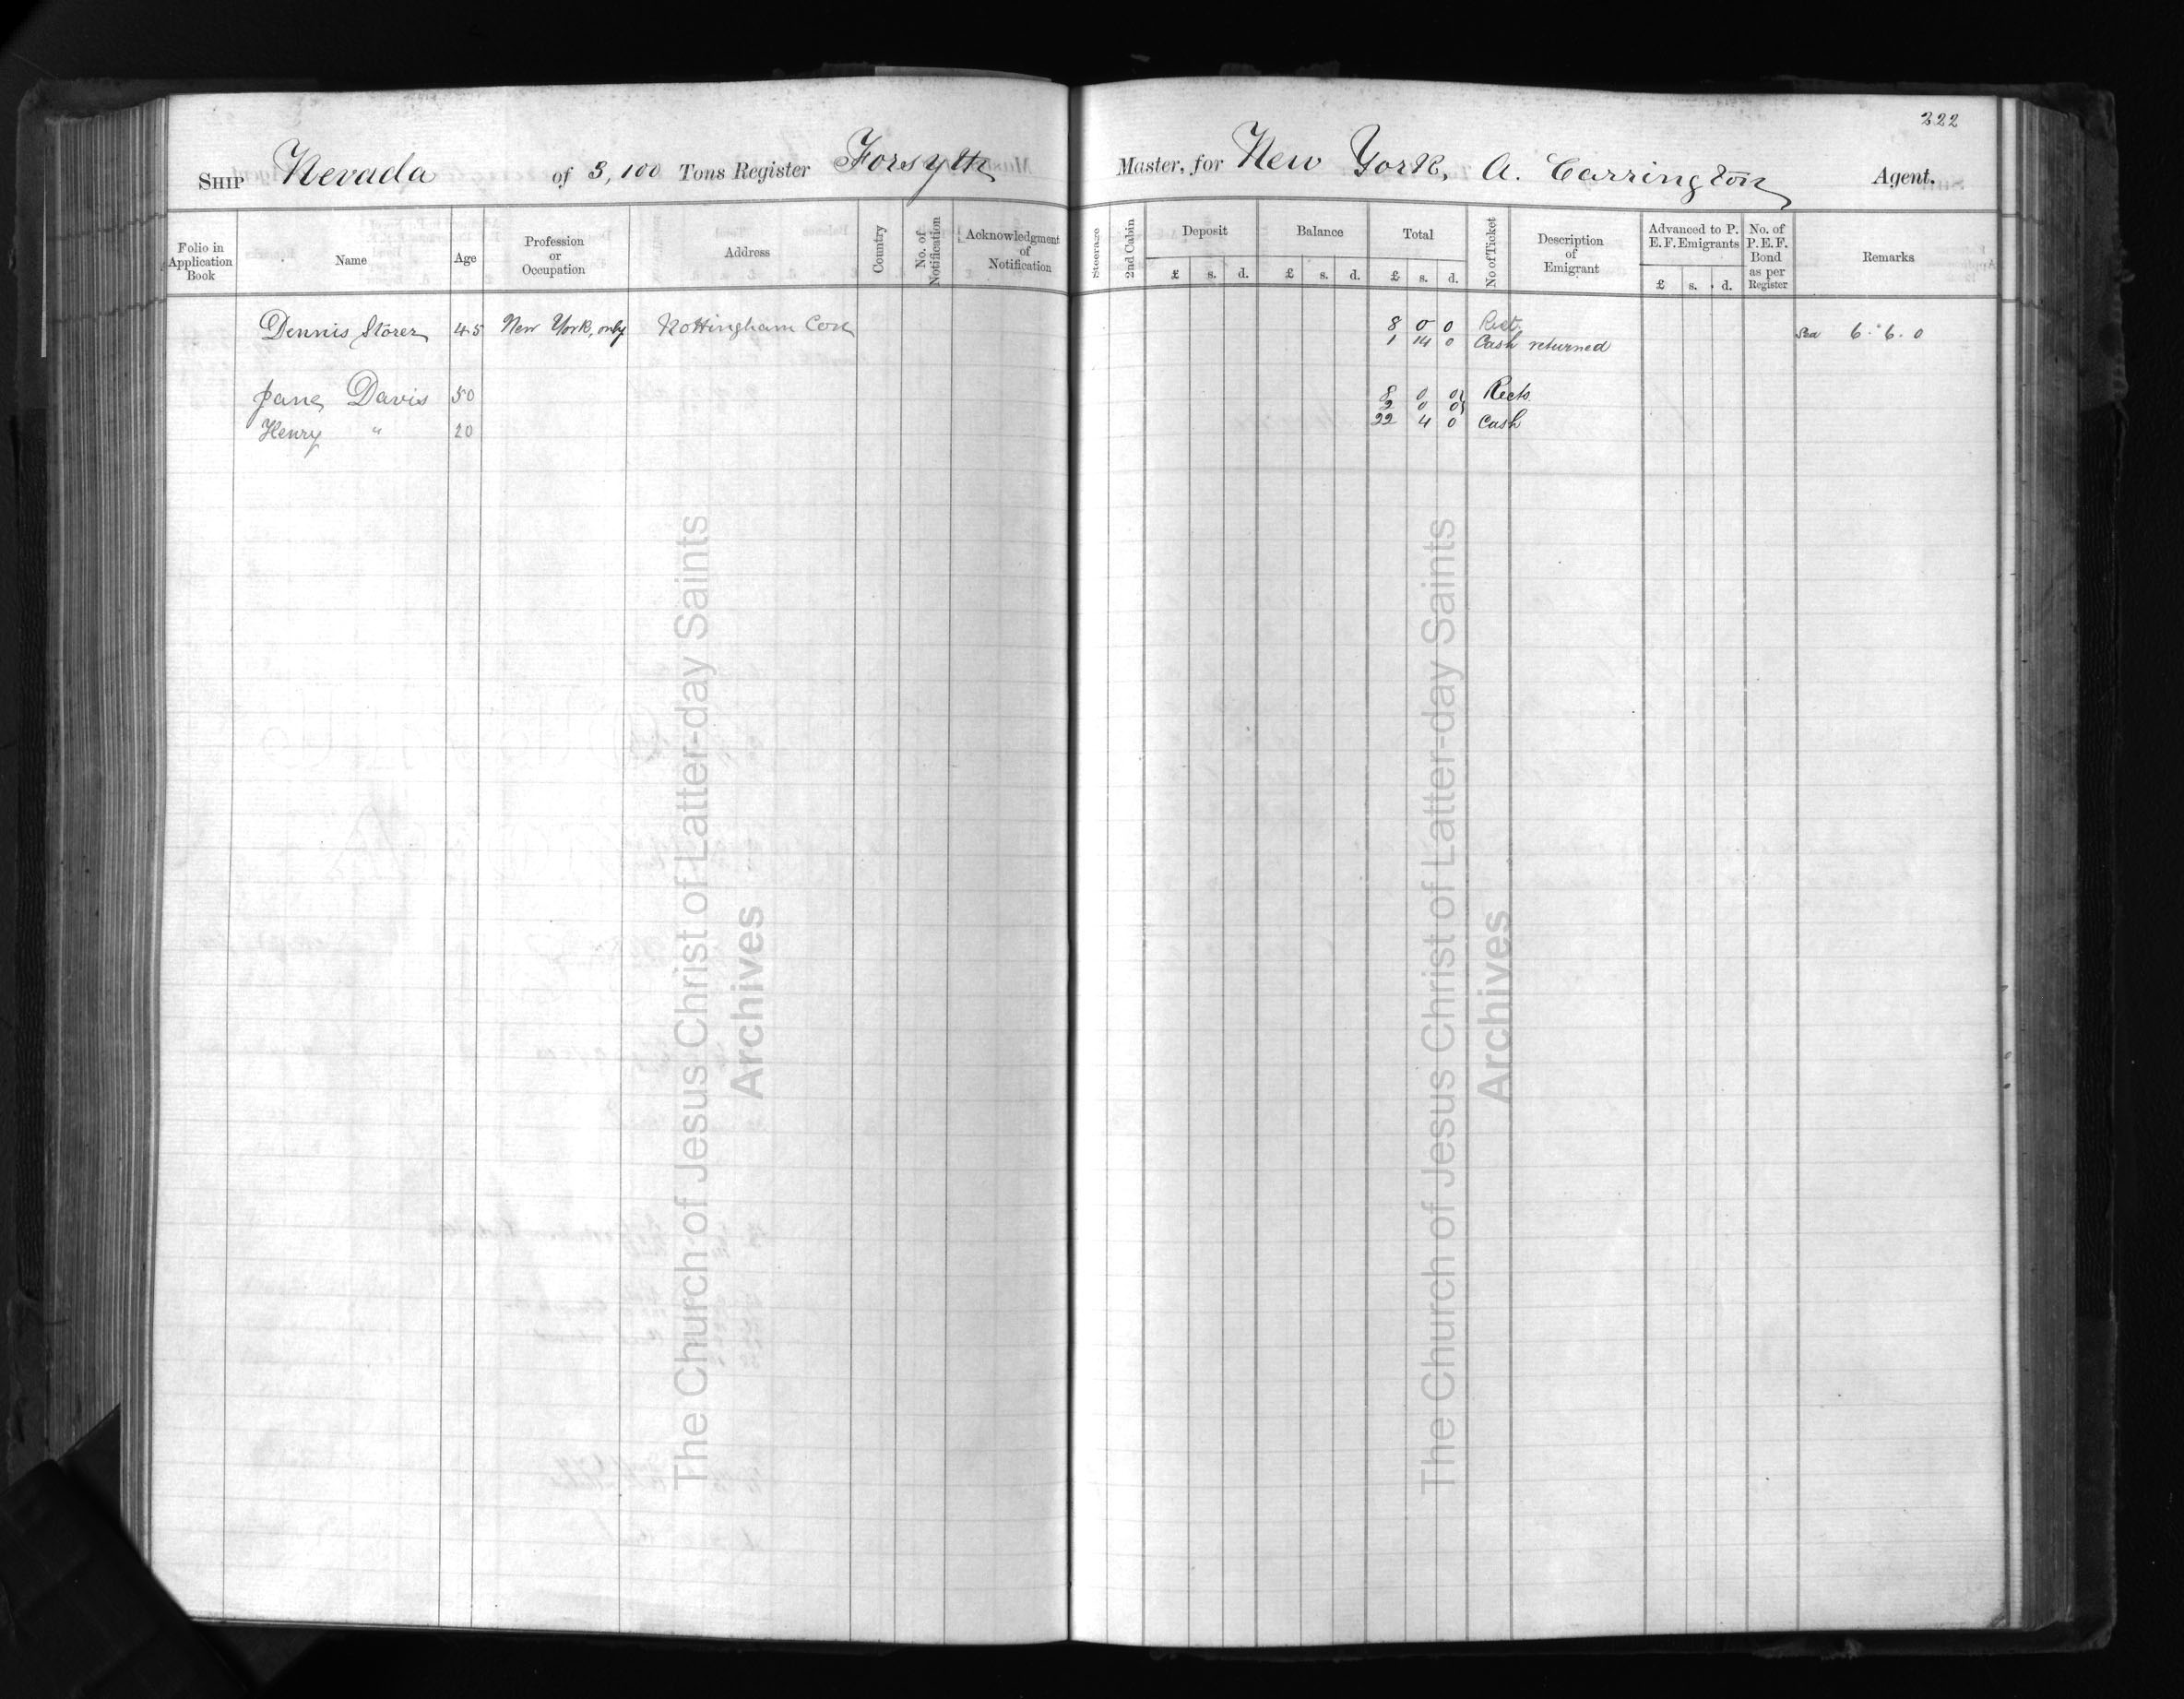 222
SHIP Nevada of 3,100 Tons Register Forsyth Master, for New York, A. Carrington Agent.
Folio in Application Book Name Age Profession or Occupation Address Country No. of Notification Acknowledgment of Notification Steerage 2nd Cabin Deposit Balance Total No of Ticket Description of Emigrant Advanced to P. E. F. Emigrants No. of P. E. F. Bond as per Register Remarks
£ s. d. £ s. d. £ s. d. £ s. d.
Dennis Storer 45 New York, only Nottingham Con 8 0 0 Rect. Sea 6 . 6 . 0
1 14 0 Cash returned
Jane Davis 50 8 0 0 Rects.
2 0 0
Henry " 20 22 4 0 Cash
The Church of Jesus Christ of Latter-day Saints
Archives
The Church of Jesus Christ of Latter-day Saints
Archives